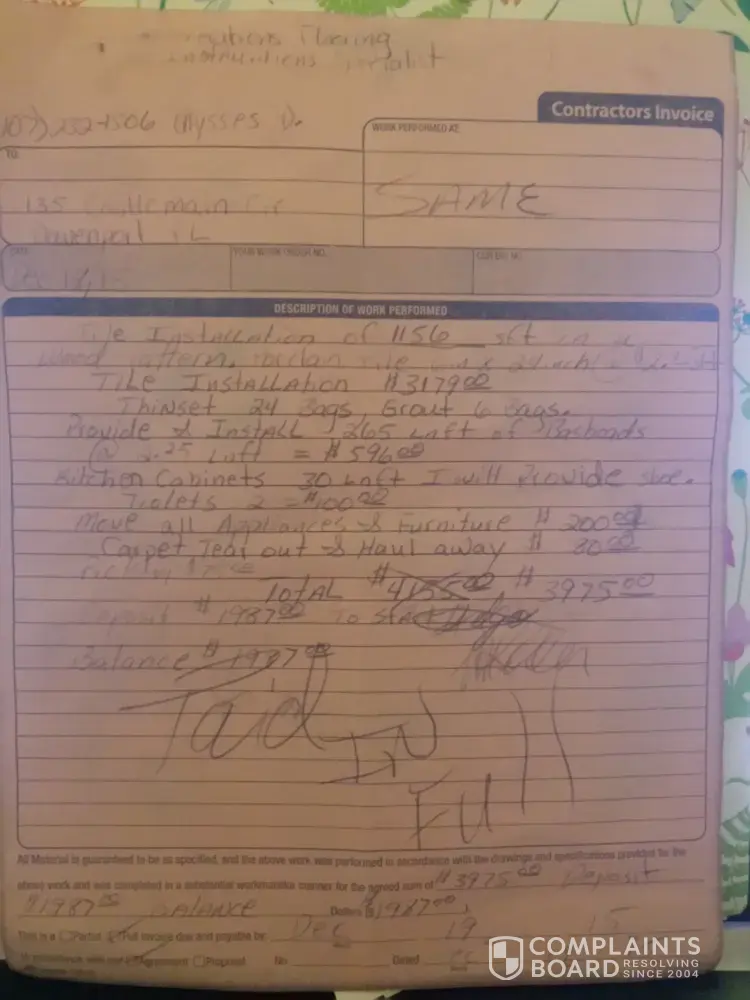 Flooring
Contractors Invoice
252-1506 Ulysses D.
WORK PERFORMED AT:
TO:
SAME
135
Davenport FL
DATE
YOUR WORK ORDER NO.
OUR BID NO.
DESCRIPTION OF WORK PERFORMED
Tile Installation of 1156 sft in a
wood pattern. tile 24 inch
Tile Installation $3179.00
Thinset 24 Bags, Grout 6 Bags.
Provide & Install 265 Lnft of Basboads
@ 2.25 Lnft = $596.00
Kitchen Cabinets 30 Lnft I will Provide shoe.
Tiolets 2 = $100.00
Move all Appliances & Furniture $ 200.00
Carpet Tear out & Haul away $ 80.00
Total $4155.00 $3975.00
Deposit $1987.00 To Start
Balance $1987.00
Paid In
Full
All Material is guaranteed to be as specified, and the above work was performed in accordance with the drawings and specifications provided for the
above work and was completed in a substantial workmanlike manner for the agreed sum of $3975.00 Deposit
$1987.00 BALANCE Dollars ($1987.00)
This is a Partial Full invoice due and payable by: Dec 19 15
Agreement Proposal No Dated
COMPLAINTS
BOARD RESOLVING SINCE 2004